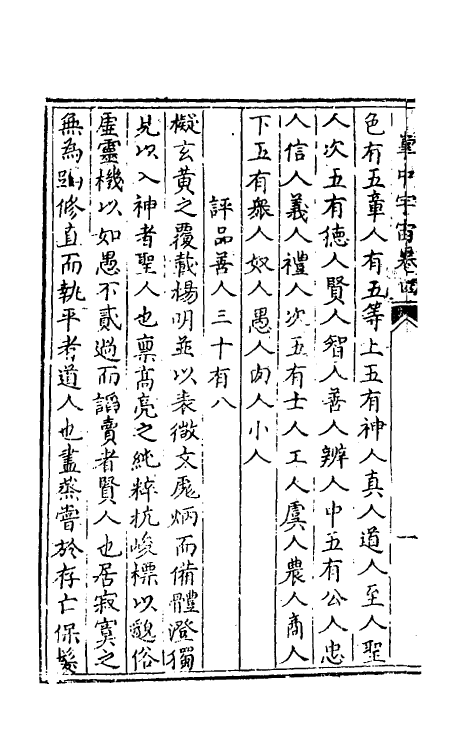 掌中宇宙卷四
一
色有五章人有五等上五有神人真人道人至人聖
人次五有德人賢人智人善人辨人中五有公人忠
人信人義人禮人次五有士人工人虞人農人商人
下五有衆人奴人愚人肉人小人
評品善人三十有八
擬玄黃之覆載揚明並以表微文彪炳而備體澄獨
見以入神者聖人也稟高亮之純粹抗峻標以邈俗
虛靈機以如愚不貳過而謟賣者賢人也居寂寞之
無為蹈修直而執平者道人也盡蒸嘗於存亡保髮